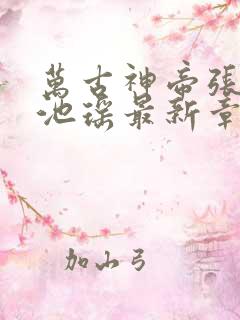 萬古神帝張
池瑤最新章
加山弓